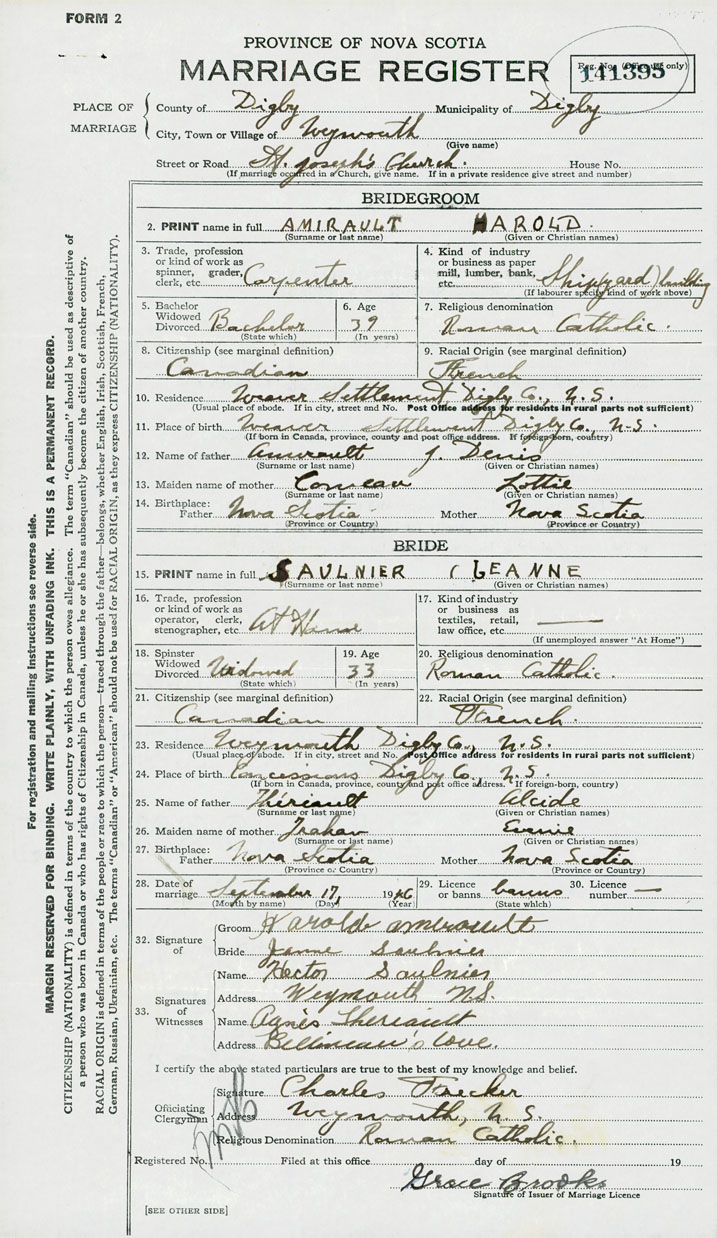 FORM 2
PROVINCE OF NOVA SCOTIA
MARRIAGE REGISTER
Reg. No. (Office use only)
141395
PLACE OF MARRIAGE
County of Digby Municipality of Digby
City, Town or Village of Weymouth
(Give name)
Street or Road St. Joseph's Church. House No.
(If marriage occurred in a Church, give name. If in a private residence give street and number)
BRIDEGROOM
2. PRINT name in full AMIRAULT HAROLD.
(Surname or last name) (Given or Christian names)
3. Trade, profession or kind of work as spinner, grader, clerk, etc. Carpenter
4. Kind of industry or business as paper mill, lumber, bank, etc. Shipyard building
(If labourer specify kind of work above)
5. Bachelor Widowed Divorced Bachelor
(State which)
6. Age 39
(In years)
7. Religious denomination
Roman Catholic.
8. Citizenship (see marginal definition)
Canadian
9. Racial Origin (see marginal definition)
French
10. Residence Weaver Settlement Digby Co., N.S.
(Usual place of abode. If in city, street and No. Post Office address for residents in rural parts not sufficient)
11. Place of birth Weaver Settlement Digby Co., N.S.
(If born in Canada, province, county and post office address. If foreign-born, country)
12. Name of father Amirault J. Denis
(Surname or last name) (Given or Christian names)
13. Maiden name of mother Comeau Lottie
(Surname or last name) (Given or Christian names)
14. Birthplace: Father Nova Scotia Mother Nova Scotia
(Province or Country) (Province or Country)
BRIDE
15. PRINT name in full SAULNIER (JEANNE
(Surname or last name) (Given or Christian names)
16. Trade, profession or kind of work as operator, clerk, stenographer, etc. At Home
17. Kind of industry or business as textiles, retail, law office, etc. —
(If unemployed answer "At Home")
18. Spinster Widowed Divorced Widowed
(State which)
19. Age 33
(In years)
20. Religious denomination
Roman Catholic.
21. Citizenship (see marginal definition)
Canadian
22. Racial Origin (see marginal definition)
French.
23. Residence Weymouth Digby Co., N.S.
(Usual place of abode. If in city, street and No. Post Office address for residents in rural parts not sufficient)
24. Place of birth Concessions Digby Co., N.S.
(If born in Canada, province, county and post office address. If foreign-born, country)
25. Name of father Thériault Alcide
(Surname or last name) (Given or Christian names)
26. Maiden name of mother Trahan
(Surname or last name) (Given or Christian names)
27. Birthplace: Father Nova Scotia Mother Nova Scotia
(Province or Country) (Province or Country)
28. Date of marriage September 17, 1946
(Month by name) (Day) (Year)
29. Licence or banns banns
(State which)
30. Licence number —
32. Signature of
Groom Harold Amirault
Bride Jeanne Saulnier
33. Signatures of Witnesses
Name Hector Saulnier
Address Weymouth N.S.
Name Agnès Theriault
Address Belliveau's Cove.
I certify the above stated particulars are true to the best of my knowledge and belief.
Officiating Clergyman
Signature Charles Frecker
Address Weymouth, N.S.
Religious Denomination Roman Catholic.
Registered No. Filed at this office day of 19
Grace Brooks
Signature of Issuer of Marriage Licence
[SEE OTHER SIDE]
For registration and mailing instructions see reverse side.
MARGIN RESERVED FOR BINDING. WRITE PLAINLY, WITH UNFADING INK. THIS IS A PERMANENT RECORD.
CITIZENSHIP (NATIONALITY) is defined in terms of the country to which the person owes allegiance. The term "Canadian" should be used as descriptive of
a person who was born in Canada or who has rights of Citizenship in Canada, unless he or she has subsequently become the citizen of another country.
RACIAL ORIGIN is defined in terms of the people or race to which the person—traced through the father—belongs, whether English, Irish, Scottish, French,
German, Russian, Ukrainian, etc. The terms "Canadian" or "American" should not be used for RACIAL ORIGIN, as they express CITIZENSHIP (NATIONALITY).